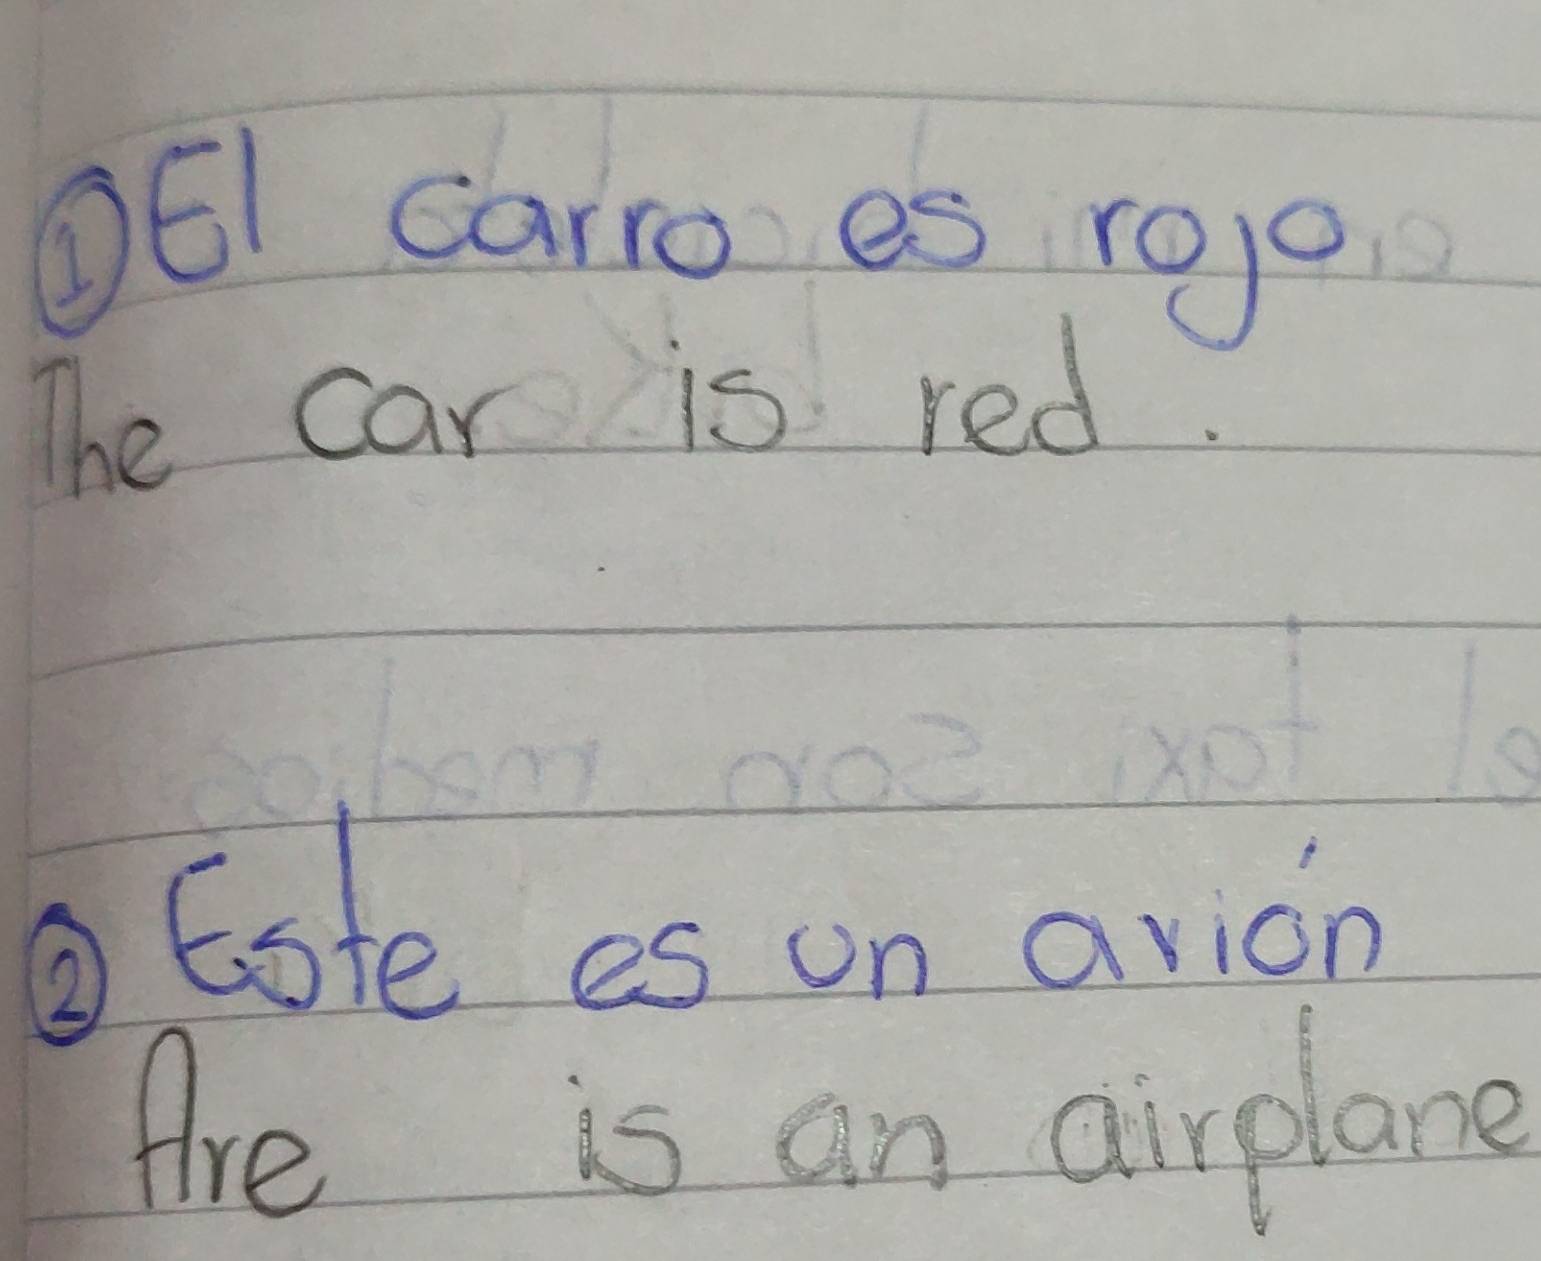 ① El carro es rojo
The car is red.
el taxi son medios
② Este es un avión
Are is an airplane